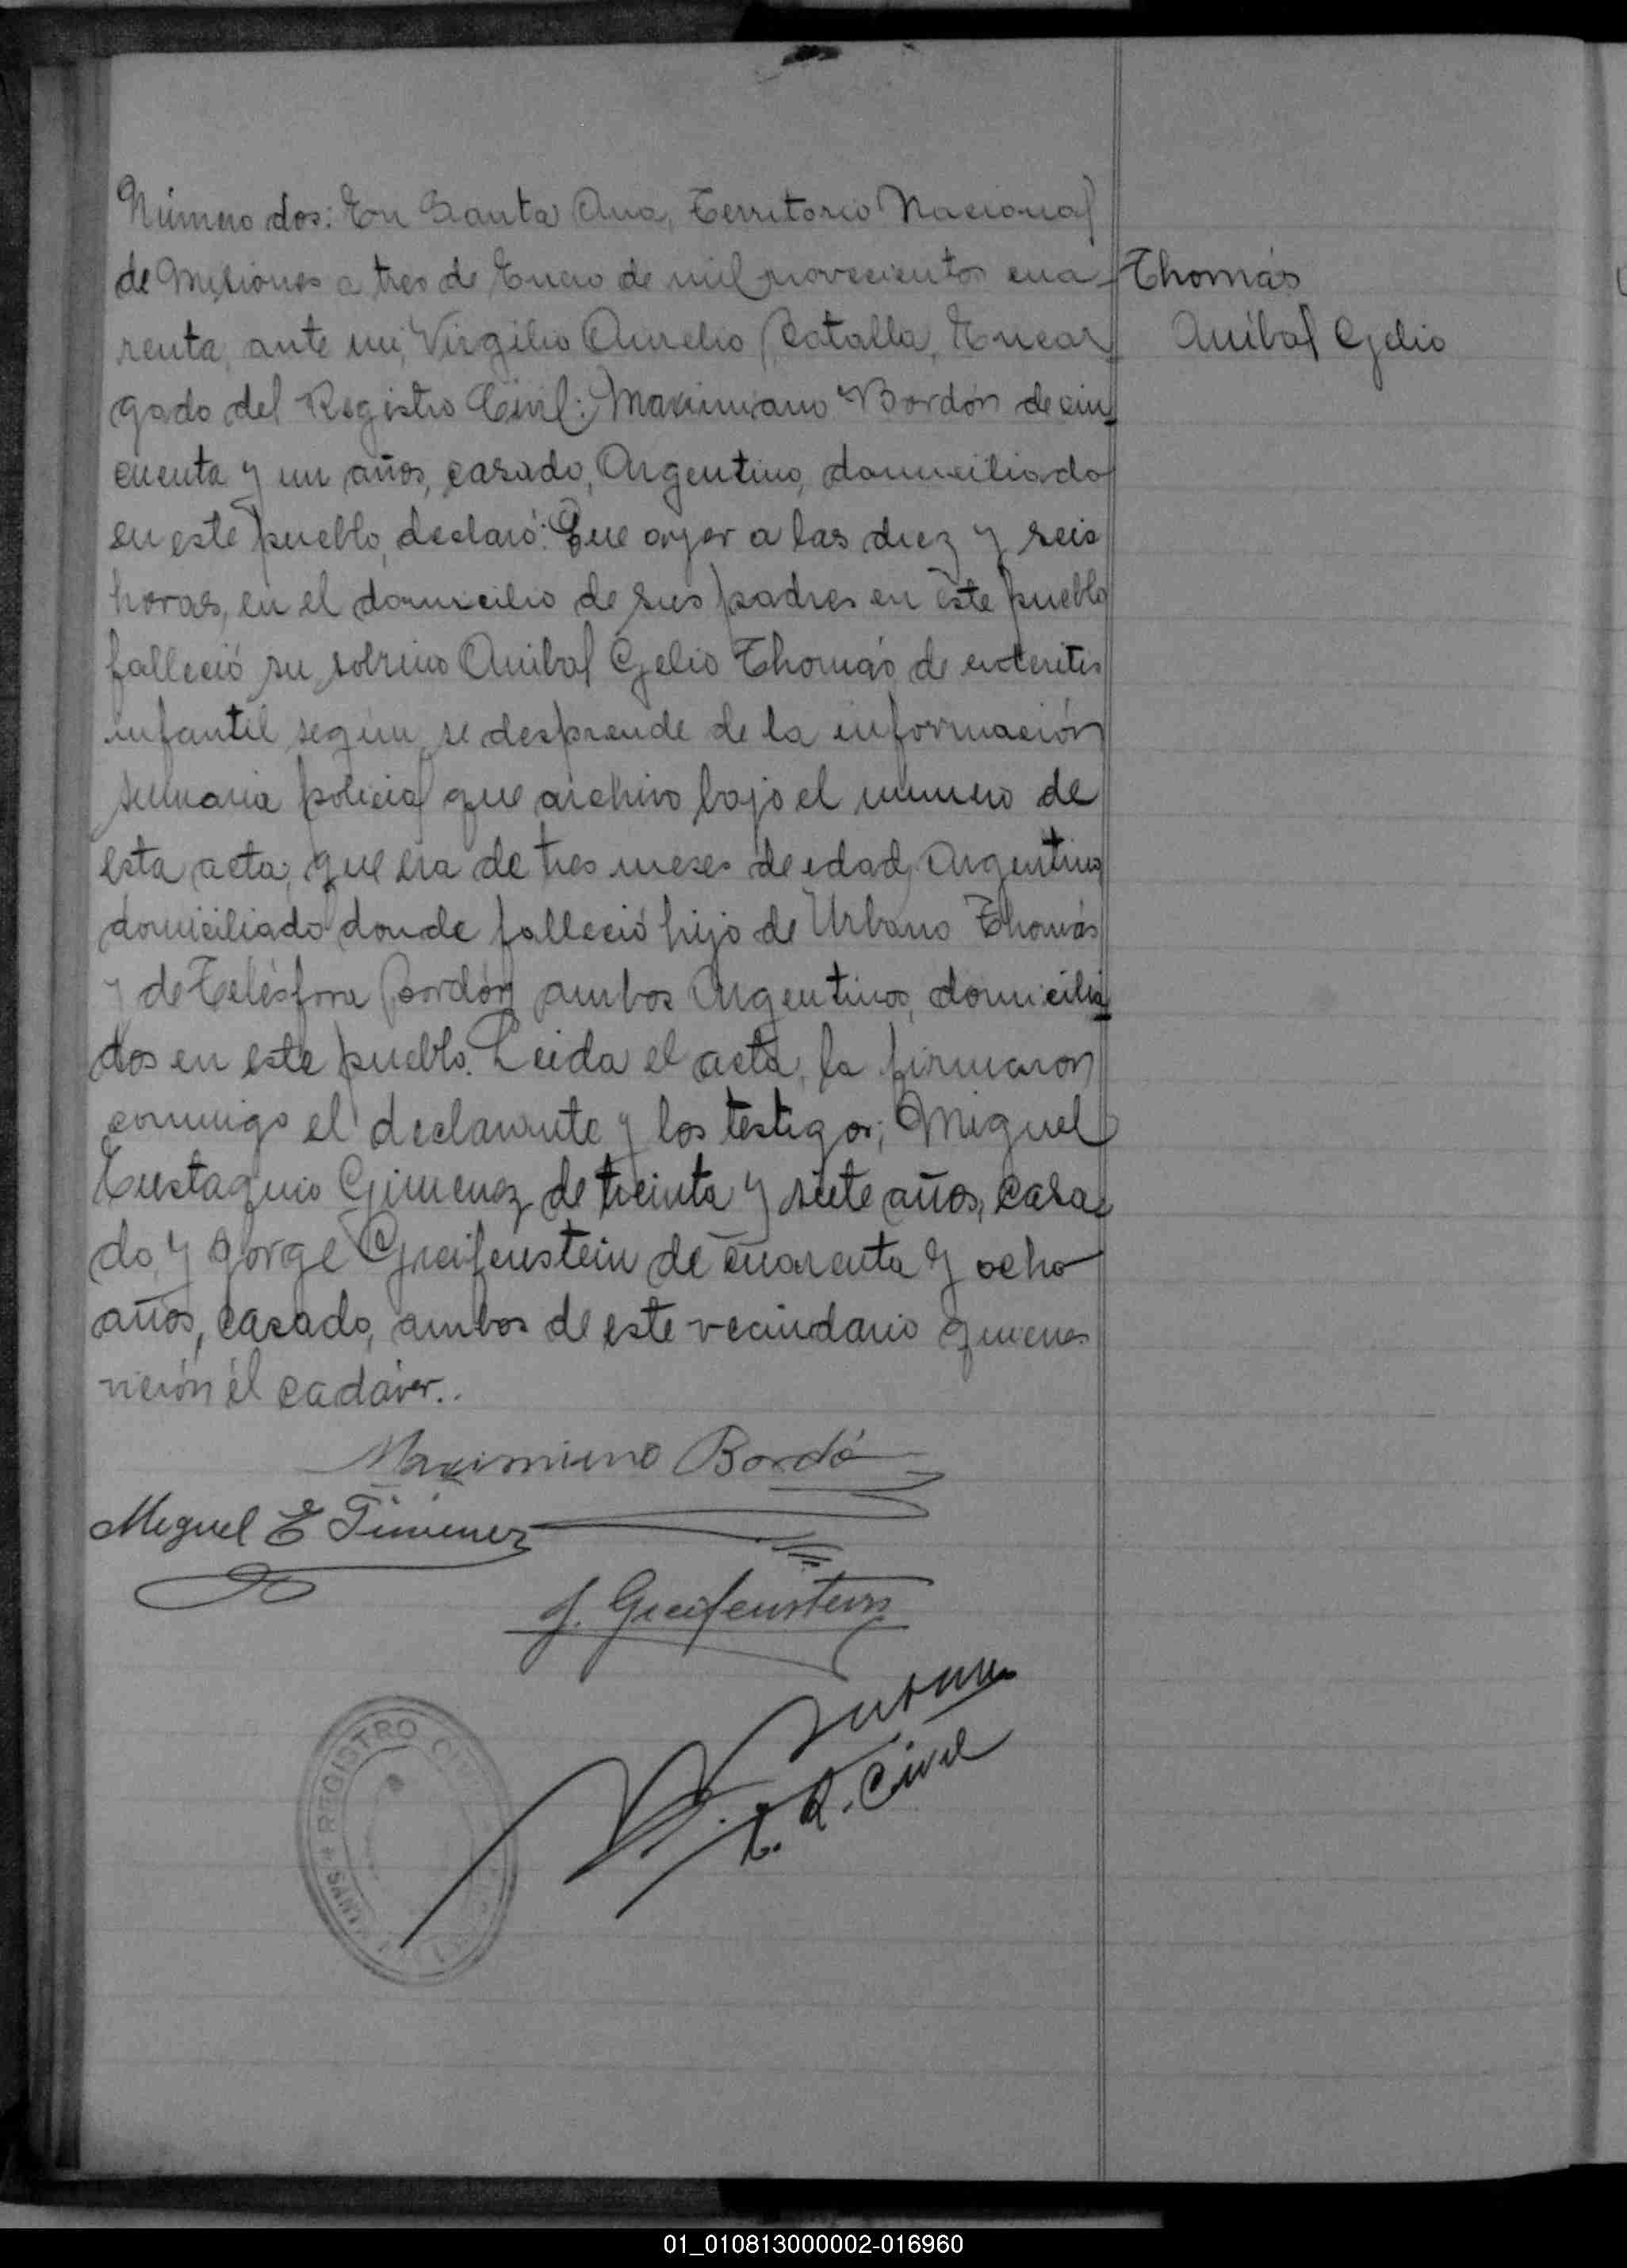 Número dos: En Santa Ana, Territorio Nacional
de Misiones a tres de Enero de mil novecientos cua-
renta, ante mi, Virgilio Aurelio Catalla, Encar
gado del Registro Civil: Maximiano Bordón de cin
cuenta y un años, casado, Argentino, domiciliado
en este pueblo, declaró: Que ayer a las diez y seis
horas, en el domicilio de sus padres en este pueblo
falleció su sobrino Anibal Gelio Thomás de enteritis
infantil según se desprende de la información
sumaria policial que archivo bajo el numero de
esta acta, que era de tres meses de edad, Argentino,
domiciliado donde falleció hijo de Urbano Thomás
y de Telésfora Bordón ambos Argentinos, domicilia
dos en este pueblo. Leida el acta, la firmaron
conmigo el declarante y los testigos; Miguel
Eustaquio Gimenez de treinta y siete años, casa-
do, y Jorge Greifenstein de cuarenta y ocho
años, casado, ambos de este vecindario quienes
vieron él cadáver..
Thomás
Anibal Gelio
Maximiano Bordó
Miguel E Gimenez
J. Greifenstein
E. R. Civil
REGISTRO CIVIL
SANTA
01_010813000002-016960